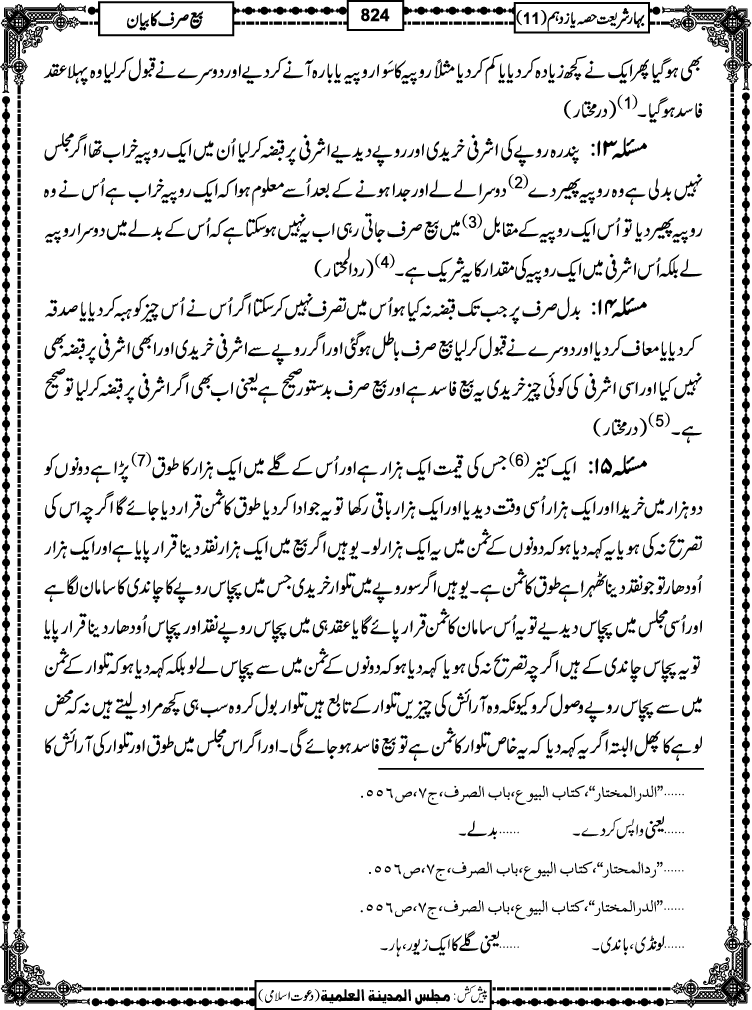 بہارِ شریعت حصہ یازدہم (11)
824
بیع صرف کا بیان
بھی ہوگیا پھر ایک نے کچھ زیادہ کردیا یا کم کردیا مثلاً روپیہ کا سوا روپیہ یا بارہ آنے کردیے اور دوسرے نے قبول کرلیا وہ پہلا عقد
فاسد ہوگیا۔(1) (درمختار)
مسئلہ ۱۳: پندرہ روپے کی اشرفی خریدی اور روپے دیدیے اشرفی پر قبضہ کرلیا اُن میں ایک روپیہ خراب تھا اگر مجلس
نہیں بدلی ہے وہ روپیہ پھیر دے(2) دوسرا لے لے اور جدا ہونے کے بعد اُسے معلوم ہوا کہ ایک روپیہ خراب ہے اُس نے وہ
روپیہ پھیر دیا تو اُس ایک روپیہ کے مقابل(3) میں بیع صرف جاتی رہی اب یہ نہیں ہوسکتا ہے کہ اُس کے بدلے میں دوسرا روپیہ
لے بلکہ اُس اشرفی میں ایک روپیہ کی مقدار کا یہ شریک ہے۔(4) (ردالمحتار)
مسئلہ ۱۴: بدل صرف پر جب تک قبضہ نہ کیا ہو اُس میں تصرف نہیں کرسکتا اگر اُس نے اُس چیز کو ہبہ کردیا یا صدقہ
کردیا یا معاف کردیا اور دوسرے نے قبول کرلیا بیع صرف باطل ہوگئی اور اگر روپے سے اشرفی خریدی اور ابھی اشرفی پر قبضہ بھی
نہیں کیا اور اسی اشرفی کی کوئی چیز خریدی یہ بیع فاسد ہے اور بیع صرف بدستور صحیح ہے یعنی اب بھی اگر اشرفی پر قبضہ کرلیا تو صحیح
ہے۔(5) (درمختار)
مسئلہ ۱۵: ایک کنیز(6) جس کی قیمت ایک ہزار ہے اور اُس کے گلے میں ایک ہزار کا طوق(7) پڑا ہے دونوں کو
دو ہزار میں خریدا اور ایک ہزار اُسی وقت دیدیا اور ایک ہزار باقی رکھا تو یہ جو ادا کردیا طوق کا ثمن قرار دیا جائے گا اگرچہ اس کی
تصریح نہ کی ہو یا یہ کہہ دیا ہو کہ دونوں کے ثمن میں یہ ایک ہزار لو۔ یوہیں اگر بیع میں ایک ہزار نقد دینا قرار پایا ہے اور ایک ہزار
اُودھار تو جو نقد دینا ٹھہرا ہے طوق کا ثمن ہے۔ یوہیں اگر سو روپے میں تلوار خریدی جس میں پچاس روپے کا چاندی کا سامان لگا ہے
اور اُسی مجلس میں پچاس دیدیے تو یہ اُس سامان کا ثمن قرار پائے گا یا عقد ہی میں پچاس روپے نقد اور پچاس اُودھار دینا قرار پایا
تو یہ پچاس چاندی کے ہیں اگرچہ تصریح نہ کی ہو یا کہہ دیا ہو کہ دونوں کے ثمن میں سے پچاس لے لو بلکہ کہہ دیا ہو کہ تلوار کے ثمن
میں سے پچاس روپے وصول کرو کیونکہ وہ آرائش کی چیزیں تلوار کے تابع ہیں تلوار بول کر وہ سب ہی کچھ مراد لیتے ہیں نہ کہ محض
لوہے کا پھل البتہ اگر یہ کہہ دیا کہ یہ خاص تلوار کا ثمن ہے تو بیع فاسد ہوجائے گی۔ اور اگر اس مجلس میں طوق اور تلوار کی آرائش کا
......”الدرالمختار“،کتاب البیوع،باب الصرف،ج۷،ص۵۵٦.
......یعنی واپس کردے۔ ......بدلے۔
......”ردالمحتار“،کتاب البیوع،باب الصرف،ج۷،ص۵۵٦.
......”الدرالمختار“،کتاب البیوع،باب الصرف،ج۷،ص۵۵٦.
......لونڈی،باندی۔ ......یعنی گلے کا ایک زیور،ہار۔
پیش کش: مجلس المدينة العلمية (دعوت اسلامی)